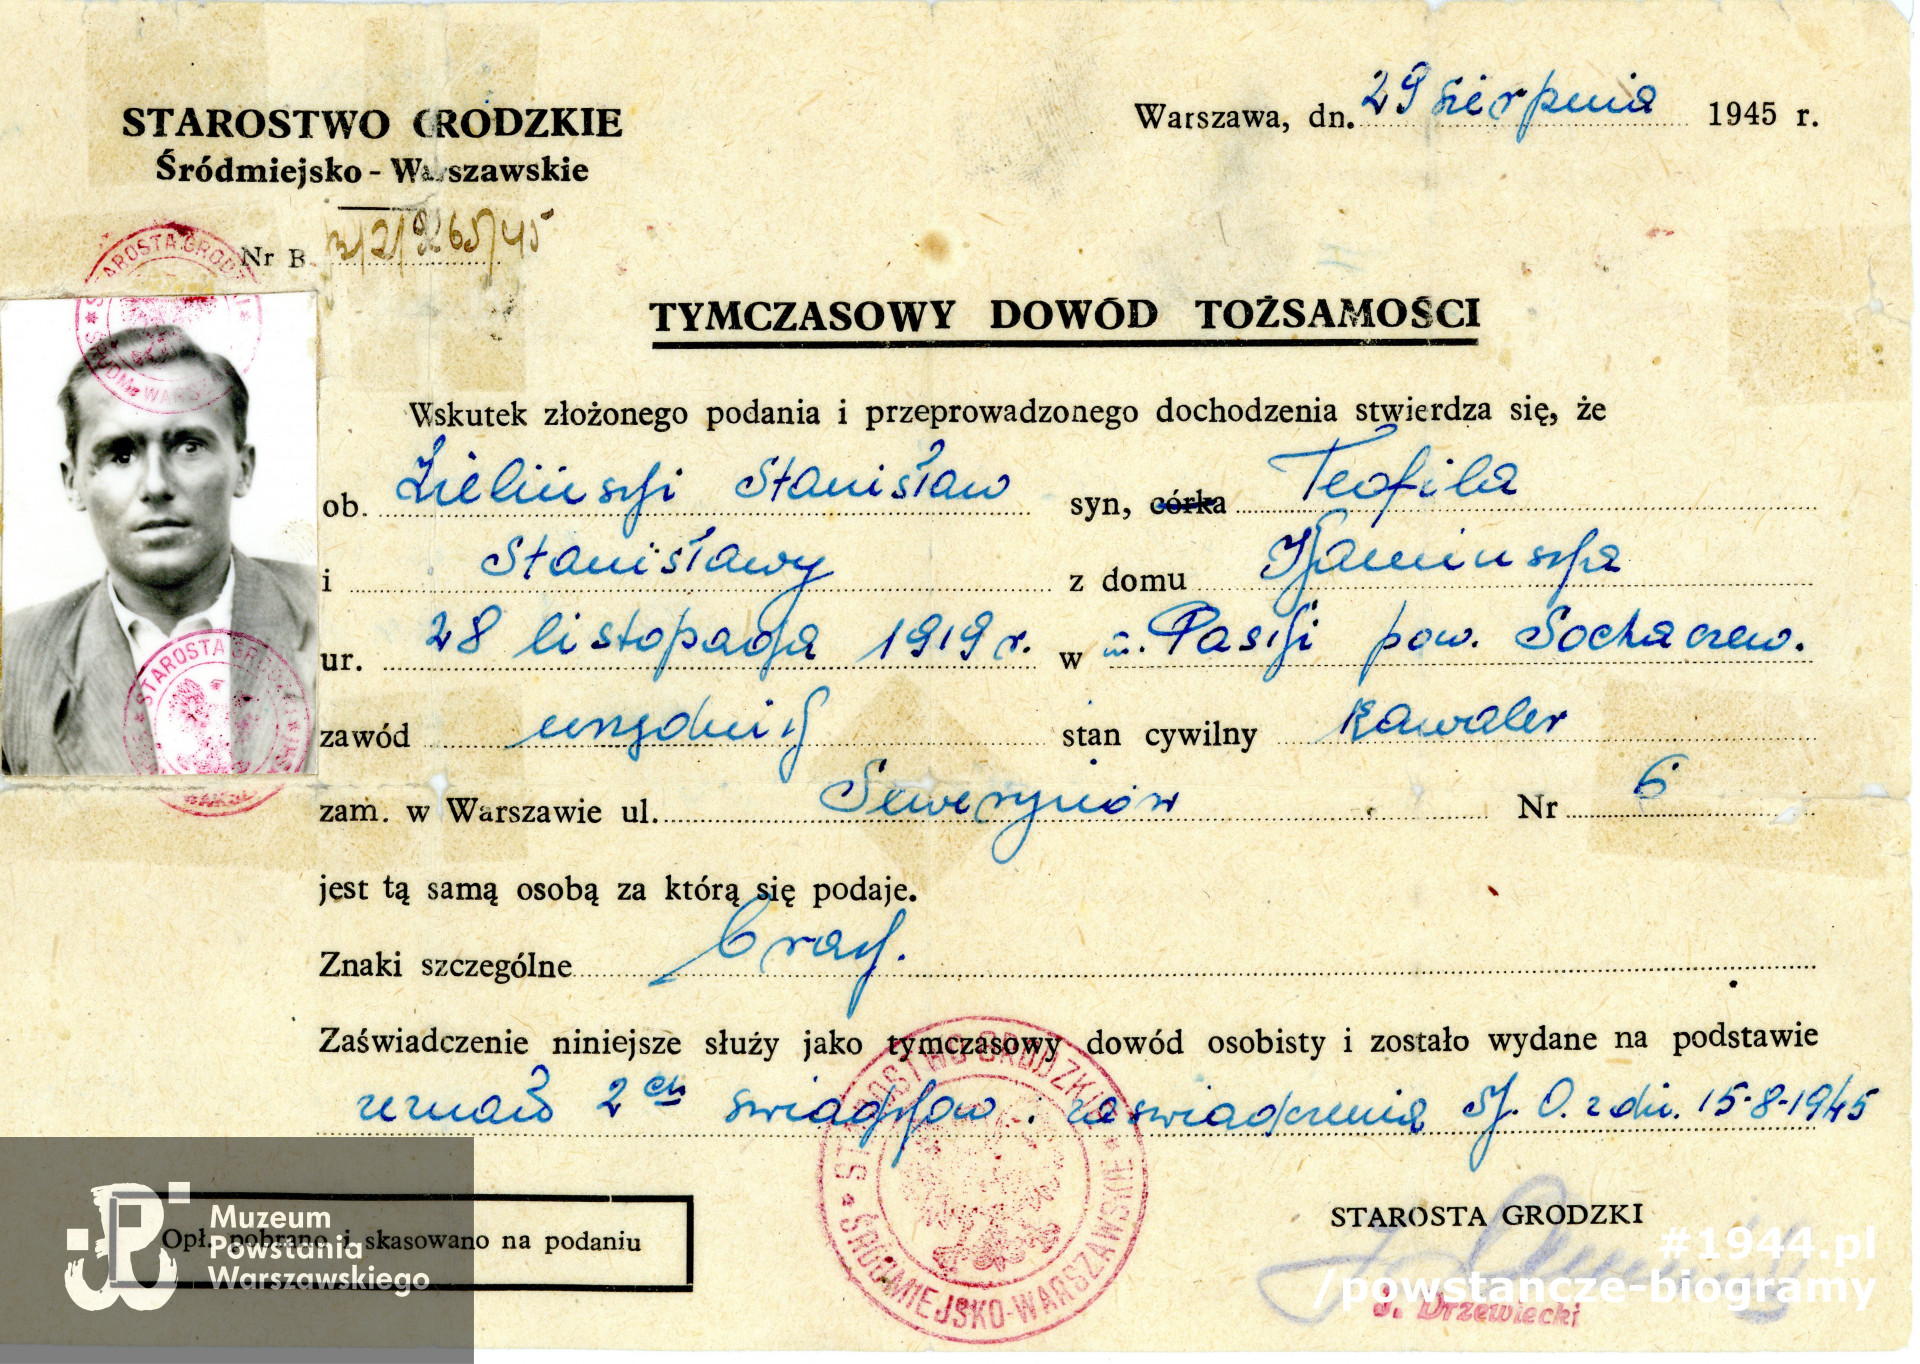 STAROSTWO GRODZKIE
Śródmiejsko-Warszawskie
Warszawa, dn. 29 sierpnia 1945 r.
Nr B. /2/9265/45
STAROSTA GRODZKI
TYMCZASOWY DOWÓD TOŻSAMOŚCI
Wskutek złożonego podania i przeprowadzonego dochodzenia stwierdza się, że
ob. Zieliński Stanisław syn, córka Teofila
i Stanisławy z domu Kamińska
ur. 28 listopada 1919 r. w m. Paski pow. Sochaczew.
zawód urzędnik stan cywilny kawaler
zam. w Warszawie ul. Sewerynów Nr 6
STAROSTA GRODZKI
jest tą samą osobą za którą się podaje.
Znaki szczególne brak.
Zaświadczenie niniejsze służy jako tymczasowy dowód osobisty i zostało wydane na podstawie
zeznań 2ch świadków i zaświadczenia K. O. z dn. 15-8-1945
STAROSTWO GRODZKIE
ŚRÓDMIEJSKO-WARSZAWSKIE
Opł. pobrano i skasowano na podaniu
STAROSTA GRODZKI
J. Drzewiecki
Muzeum
Powstania
Warszawskiego
#1944.pl
/powstancze-biogramy